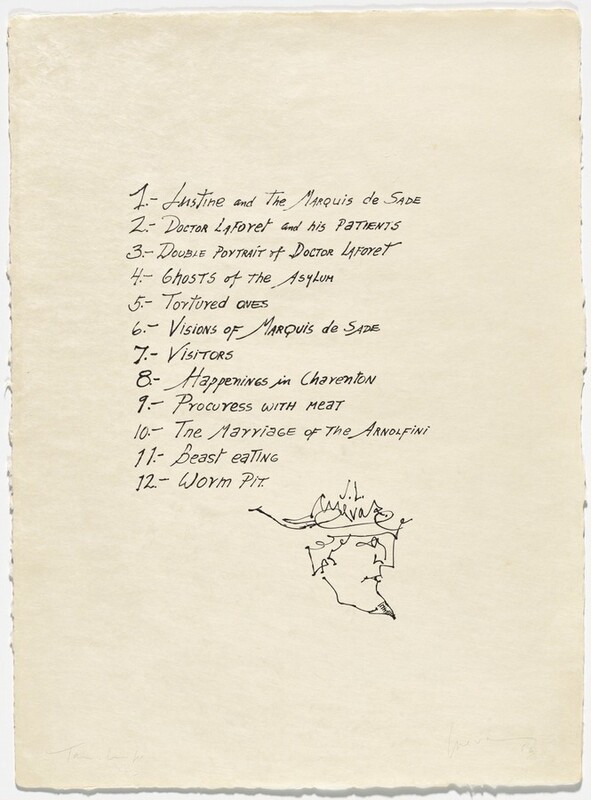 1.- Justine and the Marquis de Sade
2.- Doctor Laforet and his patients
3.- Double portrait of Doctor Laforet
4.- Ghosts of the Asylum
5.- Tortured ones
6.- Visions of Marquis de Sade
7.- Visitors
8.- Happenings in Charenton
9.- Procuress with meat
10.- The Marriage of the Arnolfini
11.- Beast eating
12.- Worm Pit.
J. L.
Cuevas